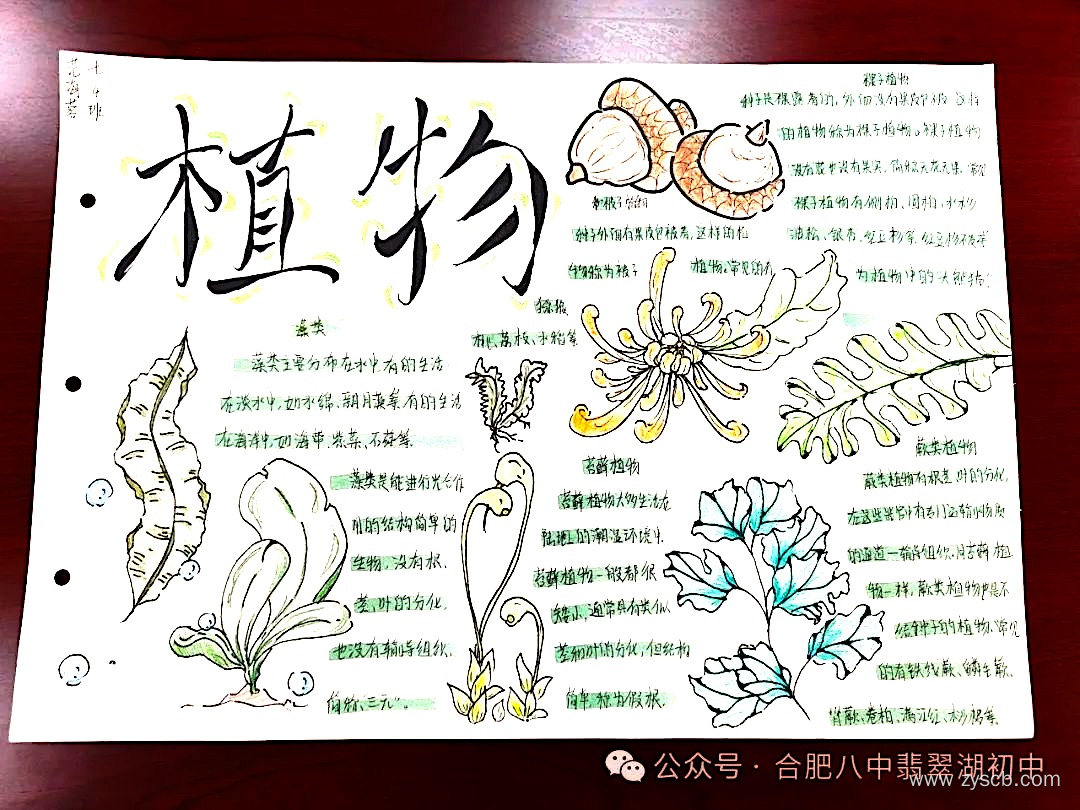 七、4班
植物
裸子植物
种子是裸露着的,外面没有果皮包被 这样
的植物称为裸子植物。裸子植物
没有花也没有果实,简称无花无果,常见
裸子植物有侧柏、圆柏、水杉
油松、银杏、红豆杉等,红豆杉
为植物中的大熊猫
被子植物
种子外面有果皮包被着,这样的植
物称为被子 植物。常见的有
桃、荔枝、水稻等
藻类
藻类主要分布在水中有的生活
在淡水中,如水绵、新月藻等,有的生活
在海洋中,如海带、紫菜、石莼等
藻类是能进行光合作
用的结构简单的
生物,没有根、
茎、叶的分化,
也没有输导组织,
简称"三无"。
苔藓植物
苔藓植物大多生活在
陆地上的潮湿环境中
苔藓植物一般都很
矮小,通常具有类似
茎和叶的分化,但结构
简单,称为假根.
蕨类植物
蕨类植物有根茎叶的分化,
在这些器官中有专门运输物质
的通道—输导组织,同苔藓植
物一样,蕨类植物也是不
结种子的植物,常见
的有铁线蕨、鳞毛蕨、
肾蕨、卷柏、满江红、桫椤等
公众号 · 合肥八中翡翠湖初中
www.zyscb.com